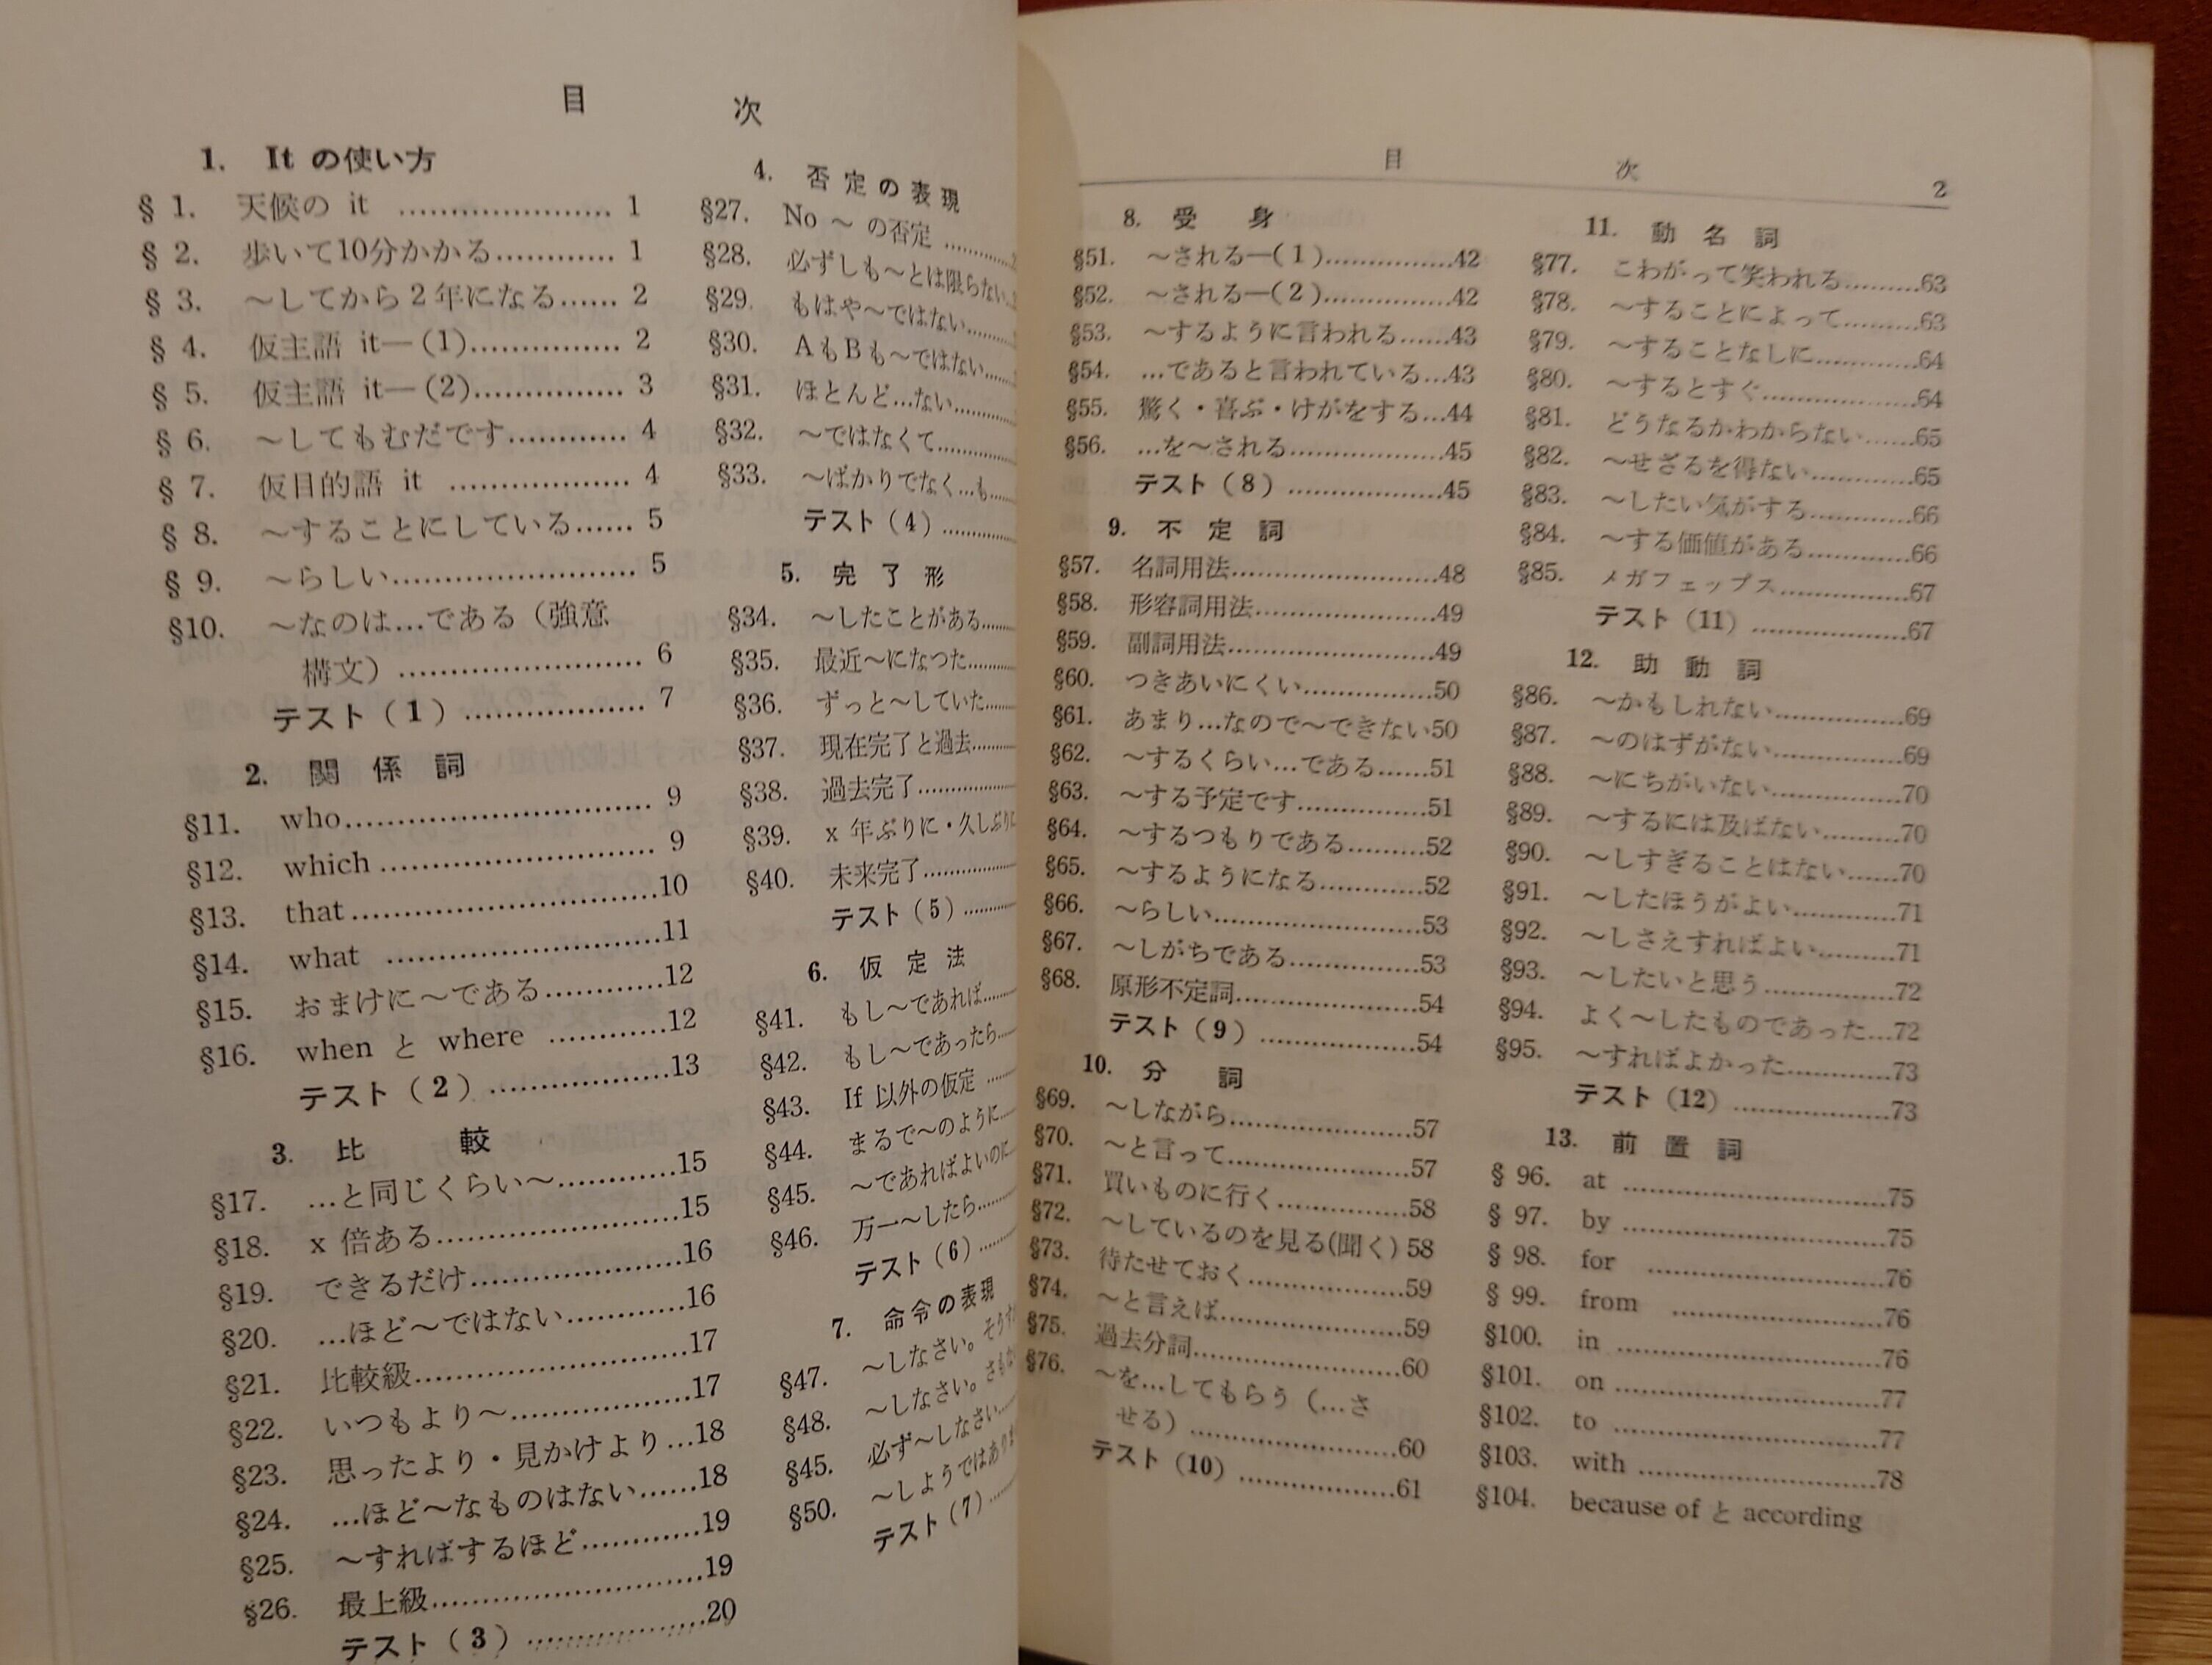 目 次
1. It の使い方
§ 1. 天候の it …………………… 1
§ 2. 歩いて10分かかる………… 1
§ 3. 〜してから2年になる…… 2
§ 4. 仮主語 it—(1)…………… 2
§ 5. 仮主語 it—(2)…………… 3
§ 6. 〜してもむだです………… 4
§ 7. 仮目的語 it ……………… 4
§ 8. 〜することにしている…… 5
§ 9. 〜らしい…………………… 5
§10. 〜なのは…である（強意
構文）…………………… 6
テスト（1）……………… 7
2. 関係詞
§11. who………………………… 9
§12. which ……………………… 9
§13. that…………………………10
§14. what ………………………11
§15. おまけに〜である…………12
§16. when と where …………12
テスト（2）………………13
3. 比較
§17. …と同じくらい〜…………15
§18. x 倍ある……………………15
§19. できるだけ…………………16
§20. …ほど〜ではない…………16
§21. 比較級………………………17
§22. いつもより〜………………17
§23. 思ったより・見かけより…18
§24. …ほど〜なものはない……18
§25. 〜すればするほど…………19
§26. 最上級………………………19
テスト（3）………………20
4. 否定の表現
§27. No 〜 の否定 ………
§28. 必ずしも〜とは限らない
§29. もはや〜ではない………
§30. AもBも〜ではない……
§31. ほとんど…ない…………
§32. 〜ではなくて……………
§33. 〜ばかりでなく…も……
テスト（4）…………
5. 完了形
§34. 〜したことがある………
§35. 最近〜になつた…………
§36. ずっと〜していた………
§37. 現在完了と過去…………
§38. 過去完了…………………
§39. x 年ぶりに・久しぶりに
§40. 未来完了…………………
テスト（5）…………
6. 仮定法
§41. もし〜であれば…………
§42. もし〜であったら………
§43. If 以外の仮定 …………
§44. まるで〜のように………
§45. 〜であればよいのに
§46. 万一〜したら……………
テスト（6）…………
7. 命令の表現
§47. 〜しなさい。そうす
§48. 〜しなさい。さもな
§45. 必ず〜しなさい…………
§50. 〜しようではあり
テスト（7）…………
目 次 2
8. 受身
§51. 〜される—(1)……………42
§52. 〜される—(2)……………42
§53. 〜するように言われる……43
§54. …であると言われている…43
§55. 驚く・喜ぶ・けがをする…44
§56. …を〜される………………45
テスト（8）………………45
9. 不定詞
§57. 名詞用法……………………48
§58. 形容詞用法…………………49
§59. 副詞用法……………………49
§60. つきあいにくい……………50
§61. あまり…なので〜できない50
§62. 〜するくらい…である……51
§63. 〜する予定です……………51
§64. 〜するつもりである………52
§65. 〜するようになる…………52
§66. 〜らしい……………………53
§67. 〜しがちである……………53
§68. 原形不定詞…………………54
テスト（9）………………54
10. 分詞
§69. 〜しながら…………………57
§70. 〜と言って…………………57
§71. 買いものに行く……………58
§72. 〜しているのを見る(聞く) 58
§73. 待たせておく………………59
§74. 〜と言えば…………………59
§75. 過去分詞……………………60
§76. 〜を…してもらう（…さ
せる）……………………60
テスト（10）……………61
11. 動名詞
§77. こわがって笑われる………63
§78. 〜することによって………63
§79. 〜することなしに…………64
§80. 〜するとすぐ………………64
§81. どうなるかわからない……65
§82. 〜せざるを得ない…………65
§83. 〜したい気がする…………66
§84. 〜する価値がある…………66
§85. メガフェップス……………67
テスト（11）……………67
12. 助動詞
§86. 〜かもしれない……………69
§87. 〜のはずがない……………69
§88. 〜にちがいない……………70
§89. 〜するには及ばない………70
§90. 〜しすぎることはない……70
§91. 〜したほうがよい…………71
§92. 〜しさえすればよい………71
§93. 〜したいと思う……………72
§94. よく〜したものであった…72
§95. 〜すればよかった…………73
テスト（12）……………73
13. 前置詞
§ 96. at …………………………75
§ 97. by …………………………75
§ 98. for ………………………76
§ 99. from ……………………76
§100. in …………………………76
§101. on …………………………77
§102. to …………………………77
§103. with ………………………78
§104. because of と according